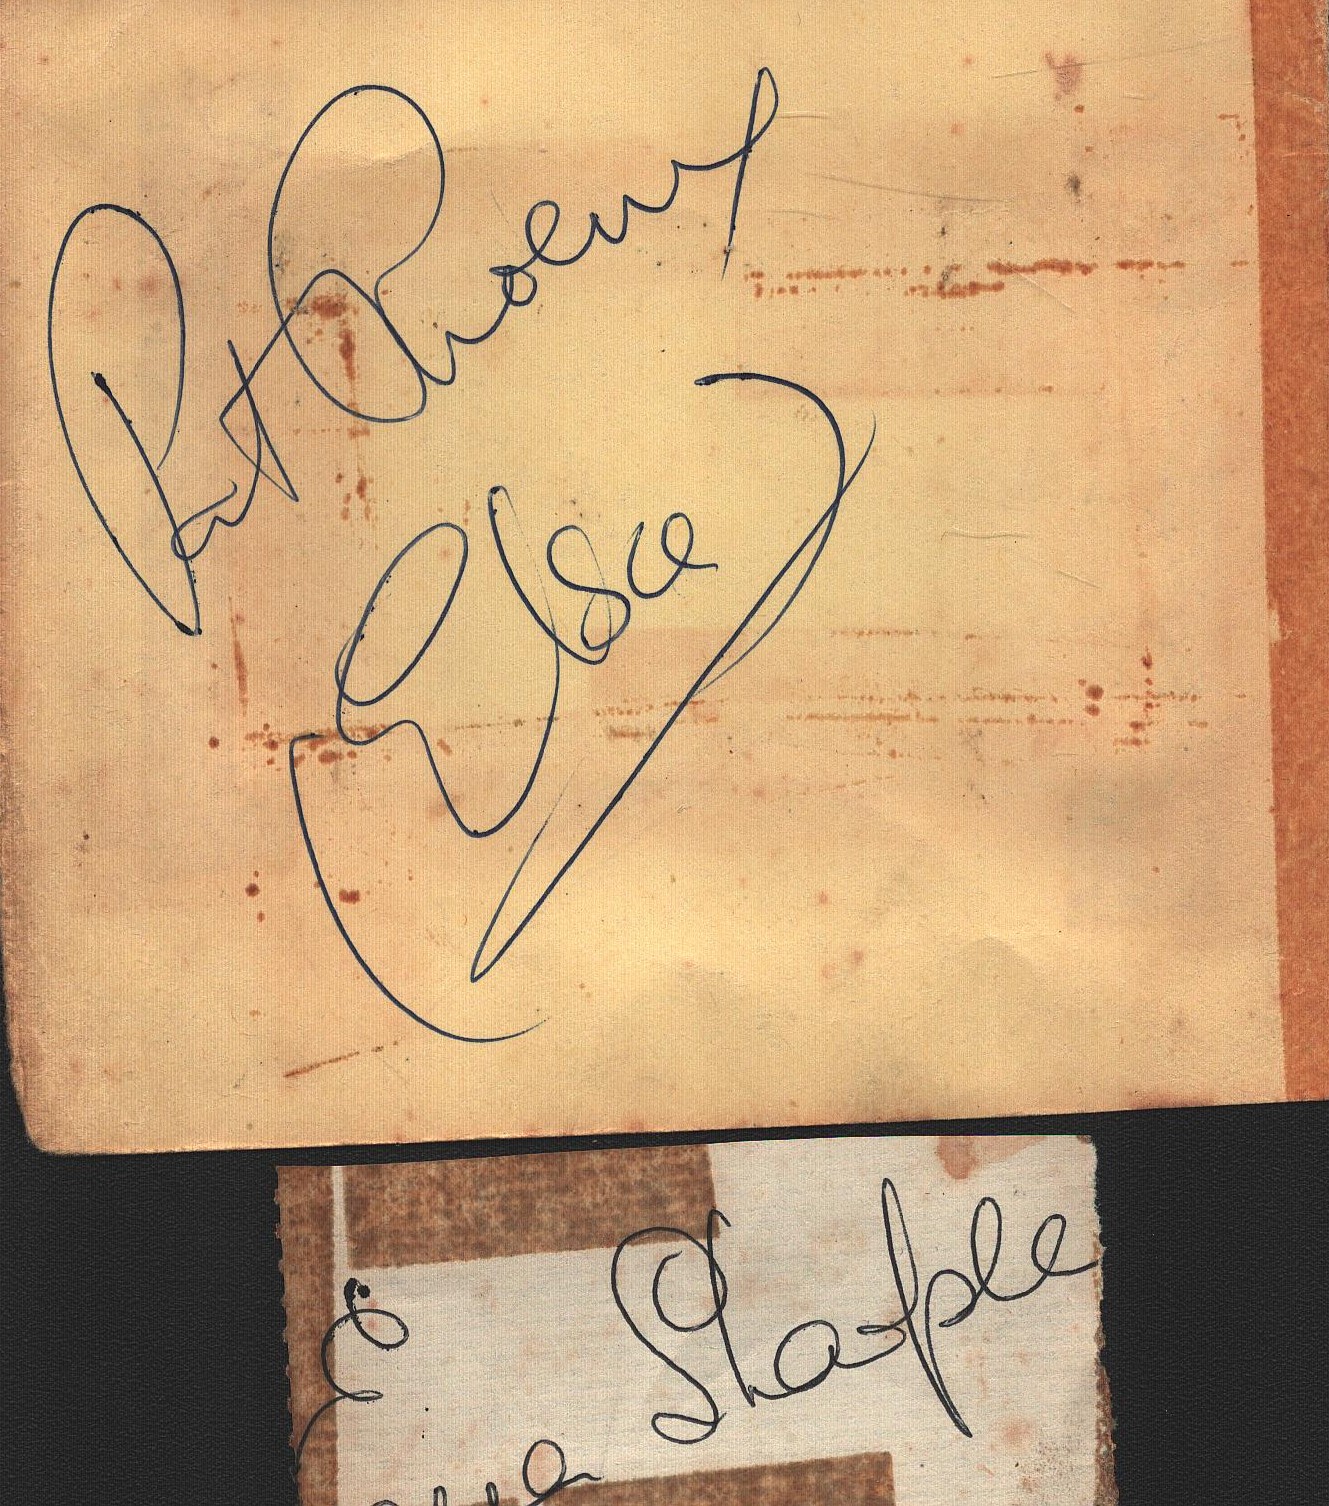 Pat Phoenix
Elsie
Sharple